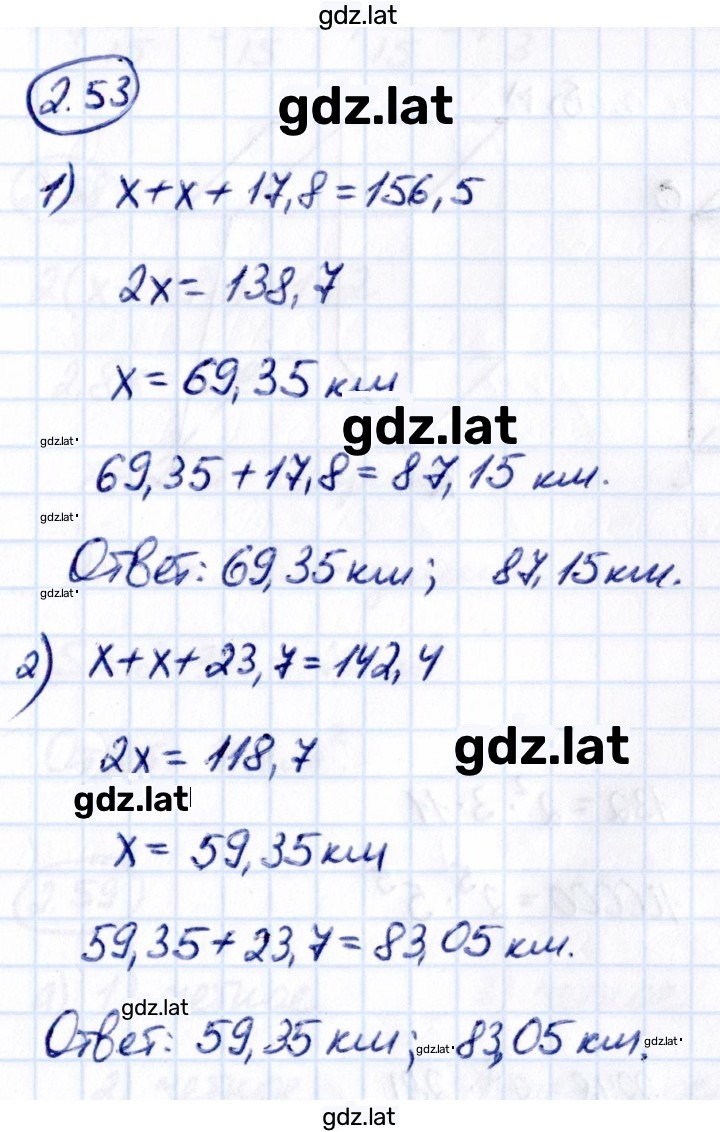 gdz.lat
2.53
gdz.lat
1) x+x+17,8=156,5
2x=138,7
x=69,35 км
gdz.lat
gdz.lat
69,35+17,8=87,15 км.
gdz.lat
Ответ: 69,35 км; 87,15 км.
gdz.lat
2) x+x+23,7=142,4
2x=118,7
gdz.lat
gdz.lat
x=59,35 км
59,35+23,7=83,05 км.
gdz.lat
Ответ: 59,35 км; 83,05 км.
gdz.lat
gdz.lat
gdz.lat